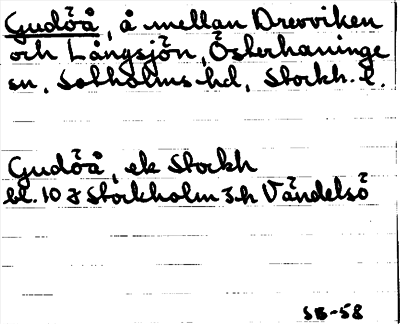 Gudöå, å mellan Drevviken
och Långsjön, Österhaninge
sn, Sotholms hd, Stockh. l.
Gudöå, ek Stockh
bl. 10 J Stockholm 3.h Vändelsö
SB-58